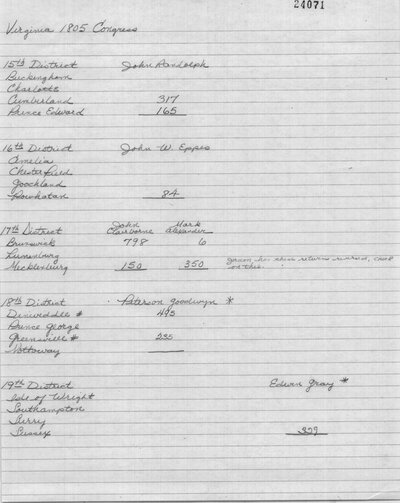 24071
Virginia 1805 Congress
15th District John Randolph
Buckingham
Charlotte
Cumberland 317
Prince Edward 165
16th District John W. Eppes
Amelia
Chesterfield
Goochland
Powhatan 84
17th District John Claiborne Mark Alexander
Brunswick 798 6
Lunenburg
Mecklenburg 150 350 has these returns reversed, check
on this.
18th District Peterson Goodwyn *
Dinwiddie * 493
Prince George
Greensville * 235
Nottoway
19th District Edwin Gray *
Isle of Wright
Southampton
Surry
Sussex 329